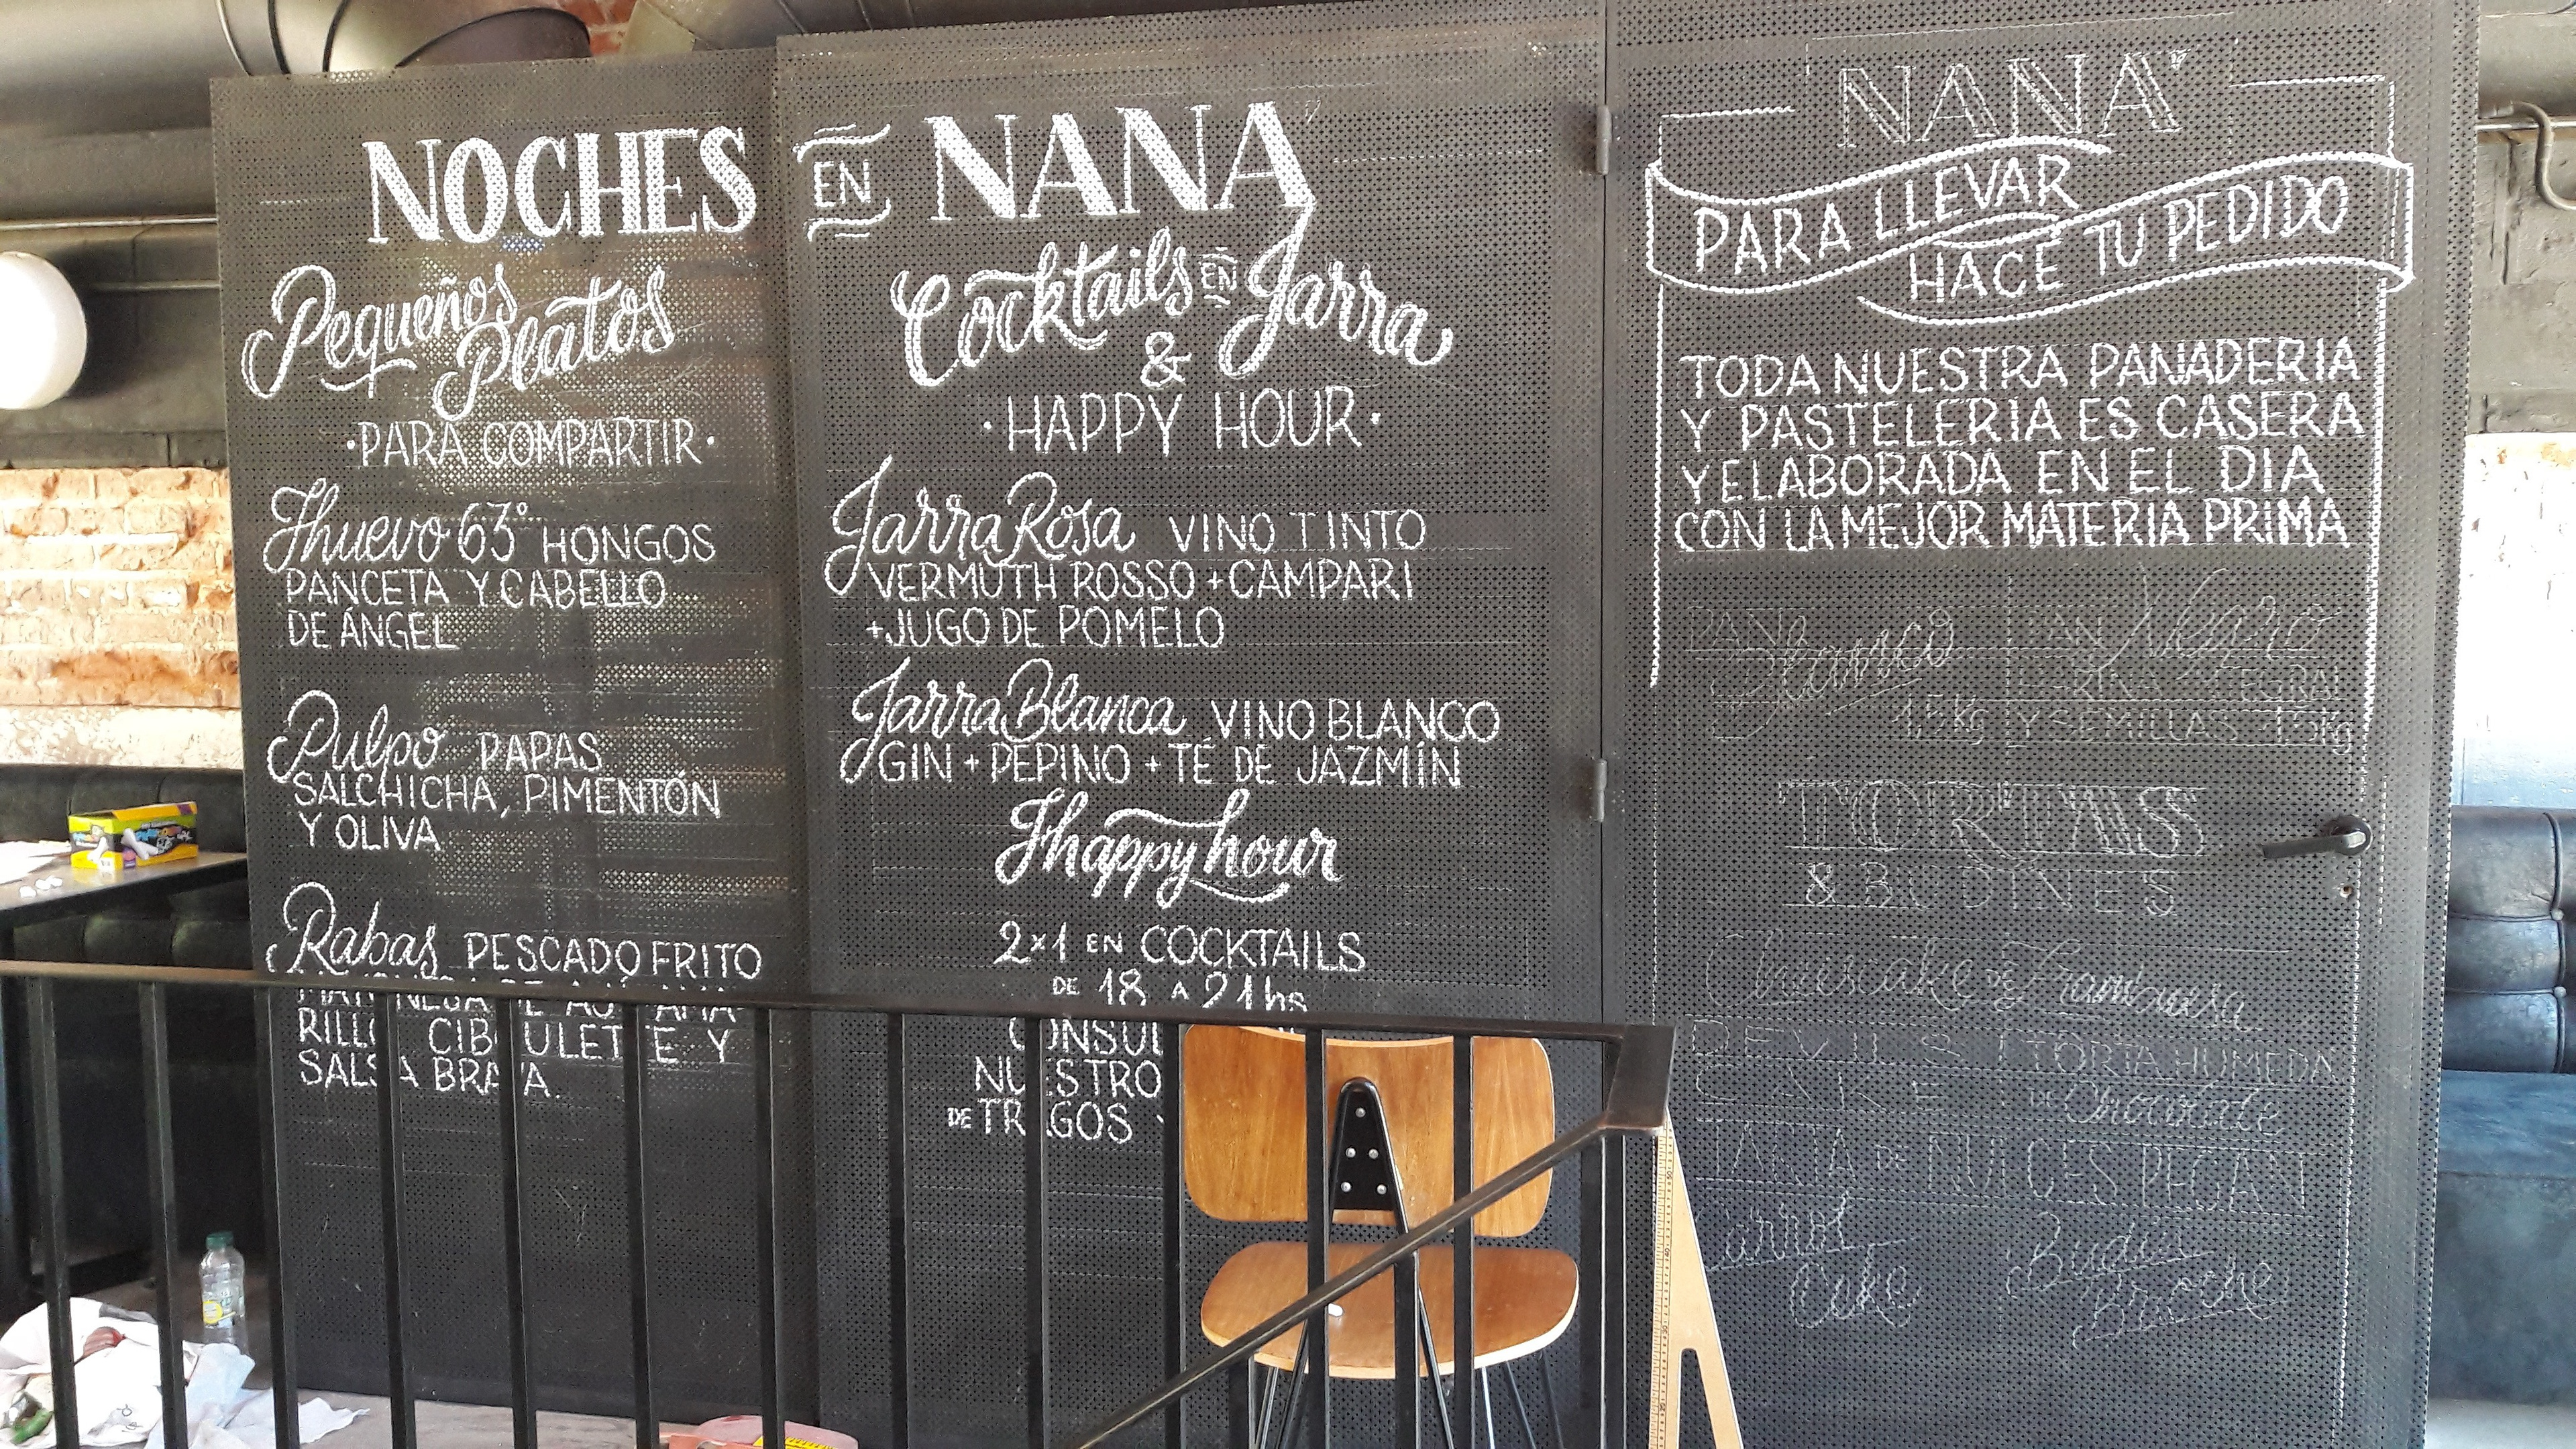 NOCHES EN NANA
Pequeños
Platos
·PARA COMPARTIR·
Huevo 63° HONGOS
PANCETA Y CABELLO
DE ÁNGEL
Pulpo PAPAS
SALCHICHA, PIMENTÓN
Y OLIVA
Rabas PESCADO FRITO
MAYONESA DE AJÍ AMA-
RILLO CIBOULETTE Y
SALSA BRAVA.
Cocktails EN Jarra
&
·HAPPY HOUR·
Jarra Rosa VINO TINTO
VERMUTH ROSSO + CAMPARI
+JUGO DE POMELO
Jarra Blanca VINO BLANCO
GIN + PEPINO + TÉ DE JAZMÍN
Happy hour
2x1 EN COCKTAILS
DE 18 A 21hs
NUESTRO
DE TRAGOS
NANA
PARA LLEVAR
HACE TU PEDIDO
TODA NUESTRA PANADERIA
Y PASTELERIA ES CASERA
Y ELABORADA EN EL DIA
CON LA MEJOR MATERIA PRIMA
PAN Blanco
1.5kg
PAN Negro
HARINA INTEGRAL
Y SEMILLAS 1.5kg
TORTAS
& BUDINES
Cheesecake de Frambuesa
DEVILS
CAKE
TORTA HUMEDA
DE Chocolate
TARTA DE NUECES PECAN
Carrot
Cake
Budin
Brioche